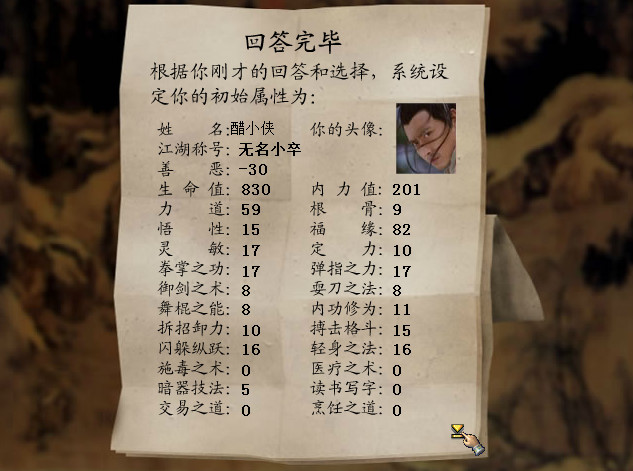 回答完毕
根据你刚才的回答和选择，系统设
定你的初始属性为：
姓 名:醋小侠 你的头像:
江湖称号: 无名小卒
善 恶: -30
生 命 值: 830 内 力 值: 201
力 道: 59 根 骨: 9
悟 性: 15 福 缘: 82
灵 敏: 17 定 力: 10
拳掌之功: 17 弹指之力: 17
御剑之术: 8 耍刀之法: 8
舞棍之能: 8 内功修为: 11
拆招卸力: 10 搏击格斗: 15
闪躲纵跃: 16 轻身之法: 16
施毒之术: 0 医疗之术: 0
暗器技法: 5 读书写字: 0
交易之道: 0 烹饪之道: 0